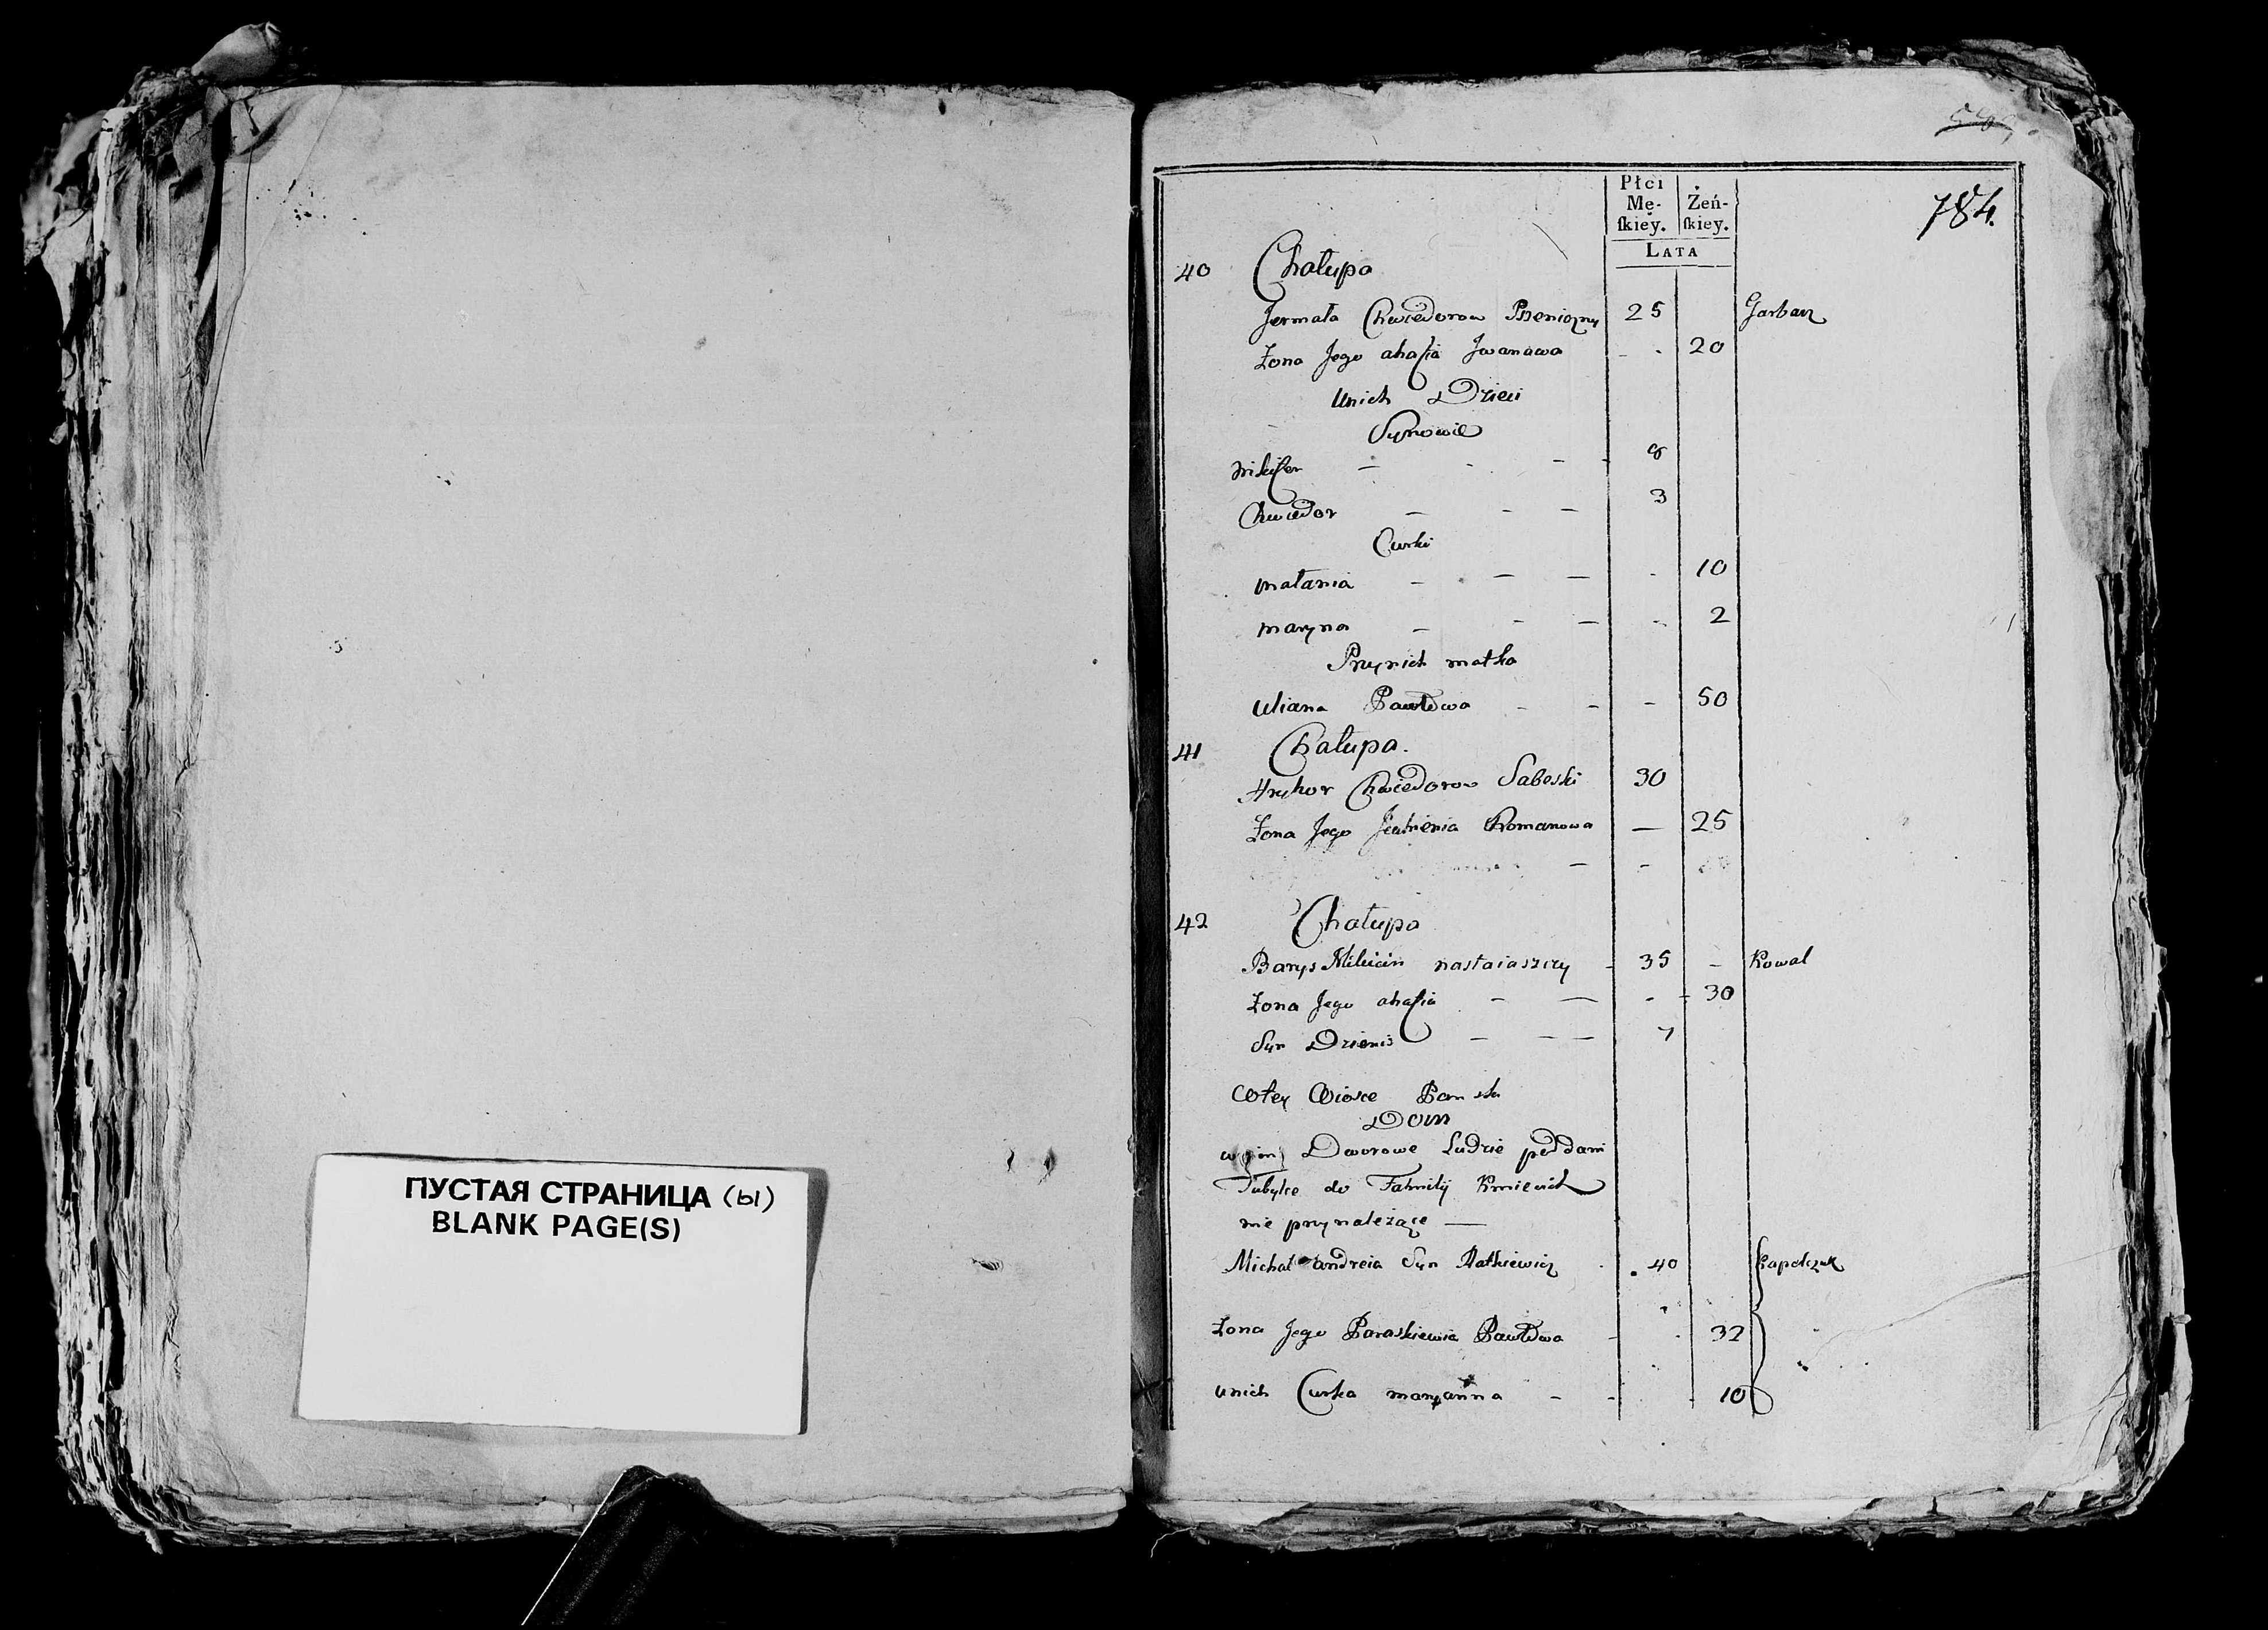 ПУСТАЯ СТРАНИЦА (ы)
BLANK PAGE(S)
784.
Płci
Mę-
ſkiey.
Żeń-
ſkiey.
LATA
40 Chałupa
Jermała Chwiedorow Pszeniczny 25 Garbarz
Żona Jego ahafia Jwanowa - - 20
Unich Dzieci
Synowie
Nikifer - - - - 8
Chwiedor - - - 3
Curki
Małania - - - - 10
Maryna - - - - 2
Przynich matka
Uliana Pawłowa - - - 50
41 Chałupa.
Hryhor Chwiedorow Saboski 30
Żona Jego Romanowa — 25
42 Chałupa
Barys Mikicin nastaiaszczy - 35 - Kowal
Żona Jego ahafia - — - - 30
Syn Dzienis - - — 7
Wtey Wiosce Panska
Dom
w nim Dworowe Ludzie poddani
Tubylce do Familij Kmiecich
nie przynależące —
Michał andreia Syn Ratkiewicz . 40
Żona Jego Paraskiewia Pawłowa - - 32
unich Curka maryanna - - - 10